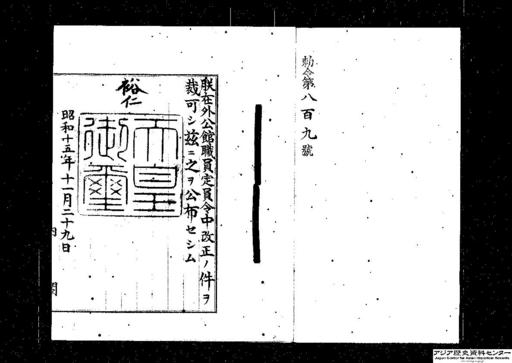 勅令第八百九號
朕在外公館職員定員令中改正ノ件ヲ
裁可シ茲ニ之ヲ公布セシム
裕仁
天皇御璽
昭和十五年十一月二十九日
内閣
アジア歴史資料センター
Japan Center for Asian Historical Records